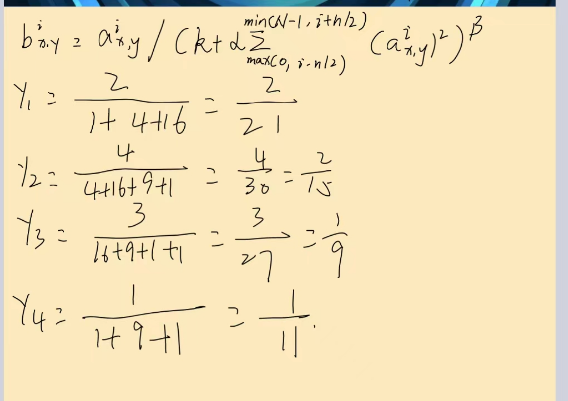 b^i_{x,y} = a^i_{x,y} / (k + α Σ_{max(0, i-n/2)}^{min(N-1, i+n/2)} (a^i_{x,y})²)^β
Y₁ = 2/(1+4+16) = 2/21
Y₂ = 4/(4+16+9+1) = 4/30 = 2/15
Y₃ = 3/(16+9+1+1) = 3/27 = 1/9
Y₄ = 1/(1+9+1) = 1/11.